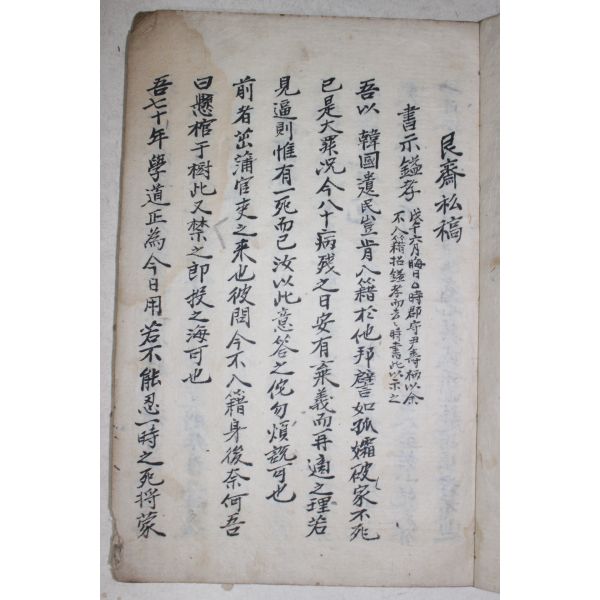 艮齋私稿
書示鎰孝
戊午六月晦日時郡守尹壽柄以余
不入籍招鎰孝而去時書此以示之
吾以 韓國遺民豈肯入籍於他邦譬如孤孀破家不死
已是大罪况今八十病殘之日安有棄義而再適之理若
見逼則惟有一死而已汝以此意答之俛勿煩說可也
前者茁蒲官吏之来也彼問今不入籍身後奈何吾
曰懸棺于樹此又禁之即投之海可也
吾七十年學道正為今日用若不能忍一時之死将蒙